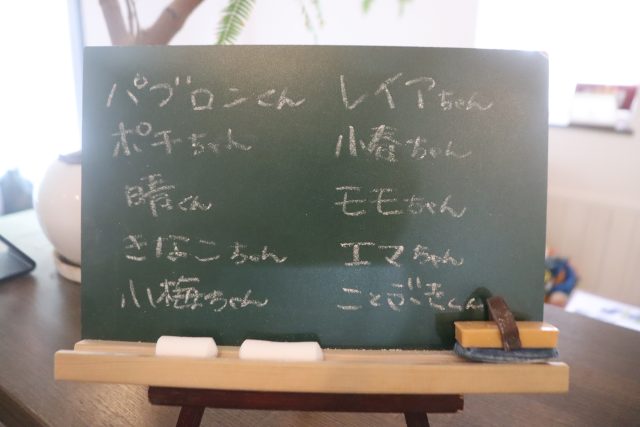 パブロンくん
ポチちゃん
晴くん
きほこちゃん
小梅ちゃん
レイアちゃん
小春ちゃん
モモちゃん
エマちゃん